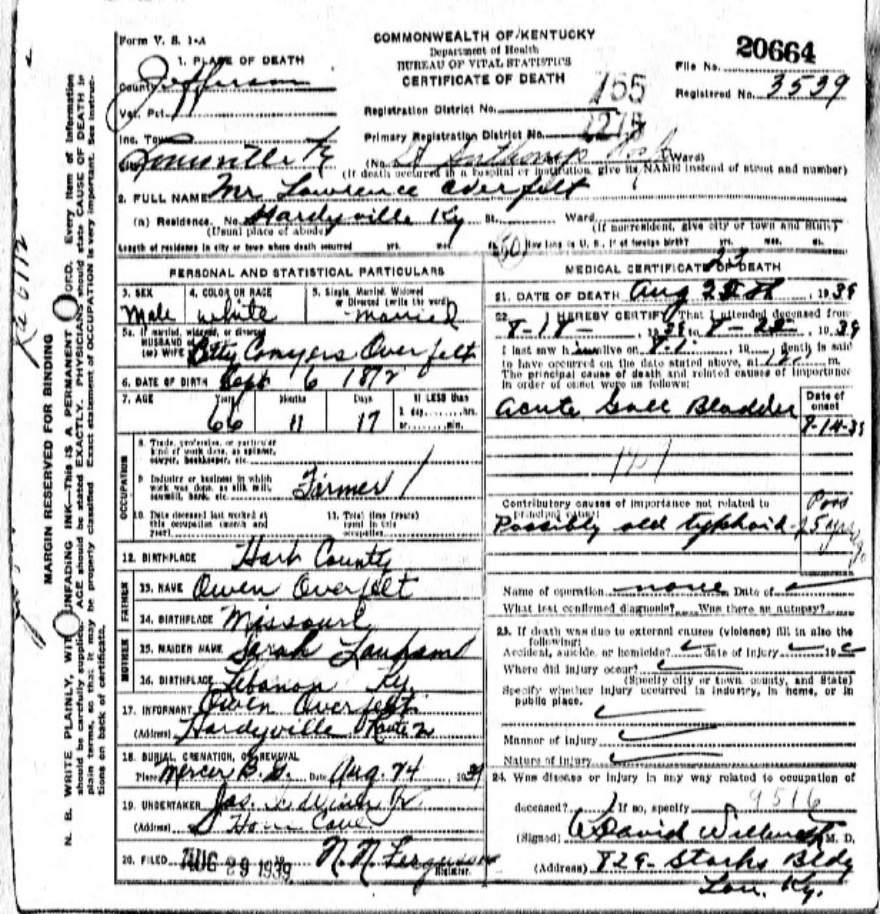 Form V. S. 1-A
COMMONWEALTH OF KENTUCKY
Department of Health
BUREAU OF VITAL STATISTICS
CERTIFICATE OF DEATH
20664
File No.
Registered No. 3539
1. PLACE OF DEATH
County Jefferson
Vot. Pct.
Inc. Town
Louisville Ky
Registration District No. 755
Primary Registration District No.
(No. St Anthonys Hosp Ward)
(If death occured in a hospital or institution, give its NAME instead of street and number)
2. FULL NAME Mr Lawrence Overfelt
(a) Residence. No. Hardyville Ky St. Ward.
(Usual place of abode) (If nonresident, give city or town and State)
Length of residence in city or town where death occurred yrs. mos. ds. How long in U. S., if of foreign birth? yrs. mos. ds.
PERSONAL AND STATISTICAL PARTICULARS
3. SEX 4. COLOR OR RACE 5. Single, Married, Widowed
or Divorced (write the word)
Male white married
5a. If married, widowed, or divorced
HUSBAND of
(or) WIFE Betty Conyers Overfelt
6. DATE OF BIRTH Sept 6 1872
7. AGE Years Months Days If LESS than
1 day, hrs.
or min.
66 11 17
OCCUPATION
8. Trade, profession, or particular
kind of work done, as spinner,
sawyer, bookkeeper, etc.
9 Industry or business in which
work was done, as silk mill,
sawmill, bank, etc. Farmer
10. Date deceased last worked at
this occupation (month and
year)
11. Total time (years)
spent in this
occupation
12. BIRTHPLACE Hart County
FATHER
13. NAME Owen Overfelt
14. BIRTHPLACE Missouri
MOTHER
15. MAIDEN NAME Sarah Lanham
16. BIRTHPLACE Lebanon Ky.
17. INFORMANT Owen Overfelt
(Address) Hardyville Route 2
18. BURIAL, CREMATION, OR REMOVAL
Place Mercer B. G. Date Aug. 24 1939
19. UNDERTAKER Jas.
(Address) Horse Cave
20. FILED AUG 29 1939 N. N. Ferguson
Registrar.
MEDICAL CERTIFICATE OF DEATH
21. DATE OF DEATH Aug 1939
22. I HEREBY CERTIFY That I attended deceased from
8-18- 1939 to 8-22 1939
I last saw h alive on 8- 19 , death is said
to have occurred on the date stated above, at m.
The principal cause of death and related causes of importance
in order of onset were as follows:
Date of
onset
Acute Gall Bladder
8-14-39
Contributory causes of importance not related to
principal cause:
Possibly old typhoid
Name of operation none Date of
What test confirmed diagnosis? Was there an autopsy?
23. If death was due to external causes (violence) fill in also the
following:
Accident, suicide, or homicide? date of injury 19
Where did injury occur?
(Specify city or town, county, and State)
Specify whether injury occurred in industry, in home, or in
public place.
Manner of injury
Nature of injury
24. Was disease or injury in any way related to occupation of
deceased? If so, specify 9516
(Signed) David M. D.
(Address) 829- Starks Bldg
Lou. Ky.
MARGIN RESERVED FOR BINDING
N. B. WRITE PLAINLY, WITH UNFADING INK—THIS IS A PERMANENT RECORD. Every item of information
should be carefully supplied. AGE should be stated EXACTLY. PHYSICIANS should state CAUSE OF DEATH in
plain terms, so that it may be properly classified. Exact statement of OCCUPATION is very important. See instruc-
tions on back of certificate.